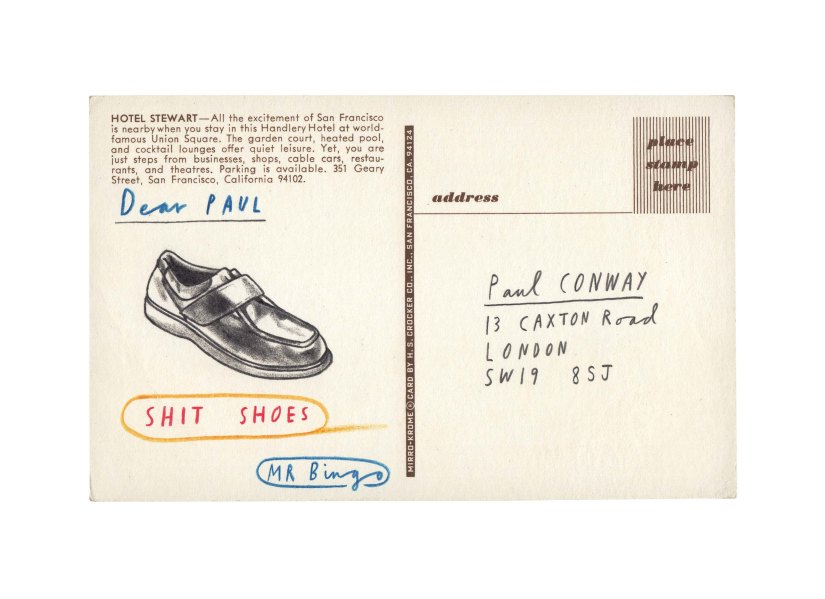 HOTEL STEWART—All the excitement of San Francisco
is nearby when you stay in this Handlery Hotel at world-
famous Union Square. The garden court, heated pool,
and cocktail lounges offer quiet leisure. Yet, you are
just steps from businesses, shops, cable cars, restau-
rants, and theatres. Parking is available. 351 Geary
Street, San Francisco, California 94102.
Dear PAUL
SHIT SHOES
MR Bingo
MIRRO-KROME® CARD BY H. S. CROCKER CO., INC., SAN FRANCISCO, CA. 94124
place
stamp
here
address
Paul CONWAY
13 CAXTON Road
LONDON
SW19 8SJ